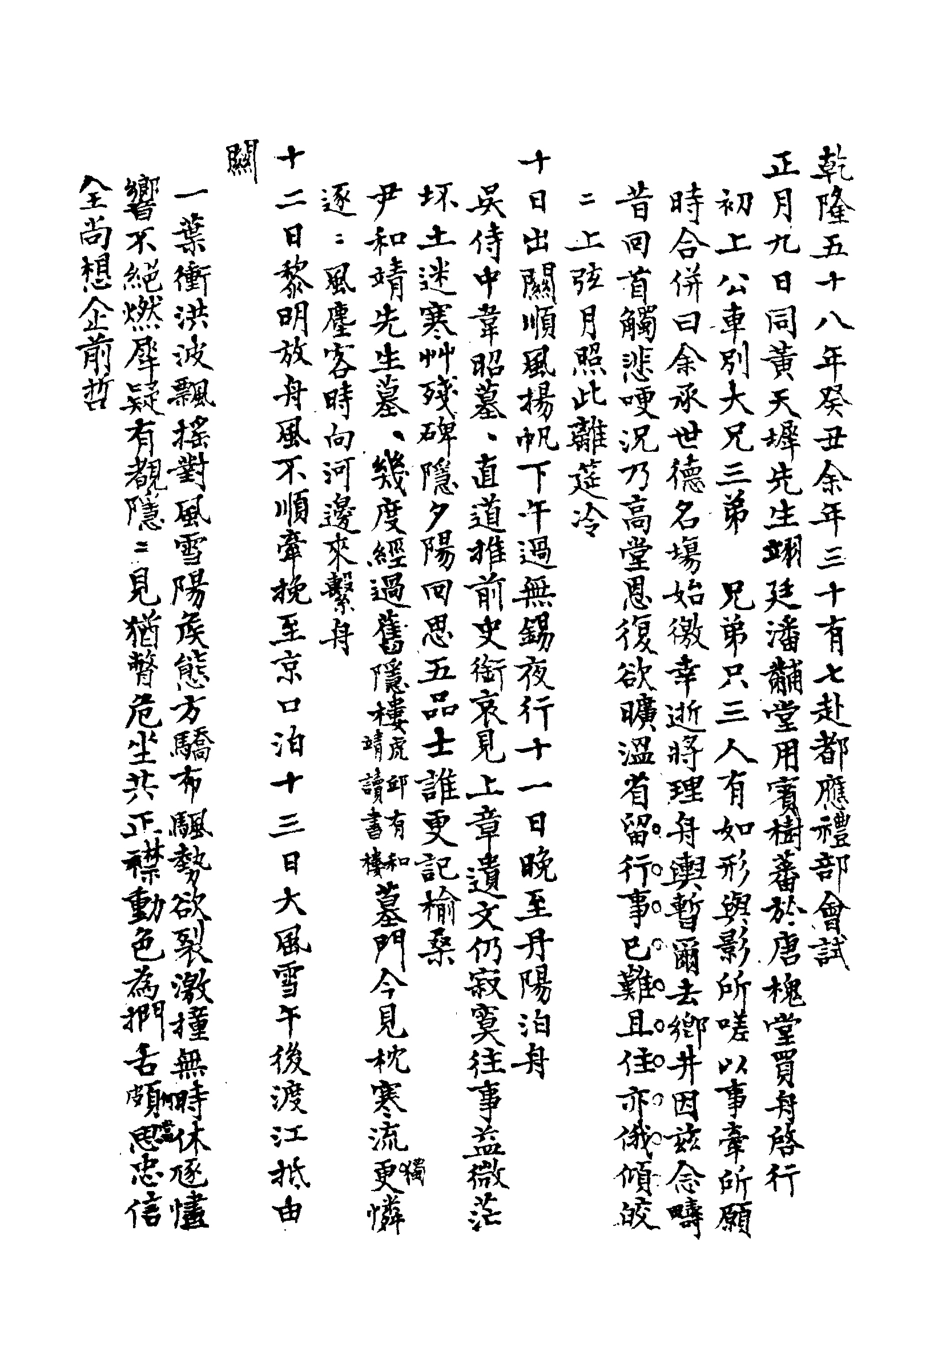 乾隆五十八年癸丑余年三十有七赴都應禮部會試
正月九日同黃天墀先生翊廷潘黼堂用賓樹蕃於唐槐堂買舟啓行
初上公車別大兄三弟 兄弟只三人有如形與影所嗟以事牽所願
時合併曰余承世德名塲始徼幸逝將理舟輿暫爾去鄉井因茲念疇
昔回首觸悲哽況乃高堂恩復欲曠溫省留行事已難且住亦俄傾皎
〻上弦月照此離筵冷
十日出關順風揚帆下午過無錫夜行十一日晚至丹陽泊舟
吳侍中韋昭墓、直道推前史銜哀見上章遺文仍寂寞往事益微茫
坏土迷寒艸殘碑隱夕陽回思五品士誰更記榆桑
尹和靖先生墓、幾度經過舊隱樓虎邱有和靖讀書樓墓門今見枕寒流更憐獨
逐〻風塵客時向河邊來繫舟
十二日黎明放舟風不順牽挽至京口泊十三日大風雪午後渡江抵由
關
一葉衝洪波飄搖對風雪陽侯態方驕布颿勢欲裂激撞無時休砯𤃩
響不絕燃犀疑有覩隱〻見猶瞥危坐共正襟動色為捫舌頗思忠信
仝尚想企前哲